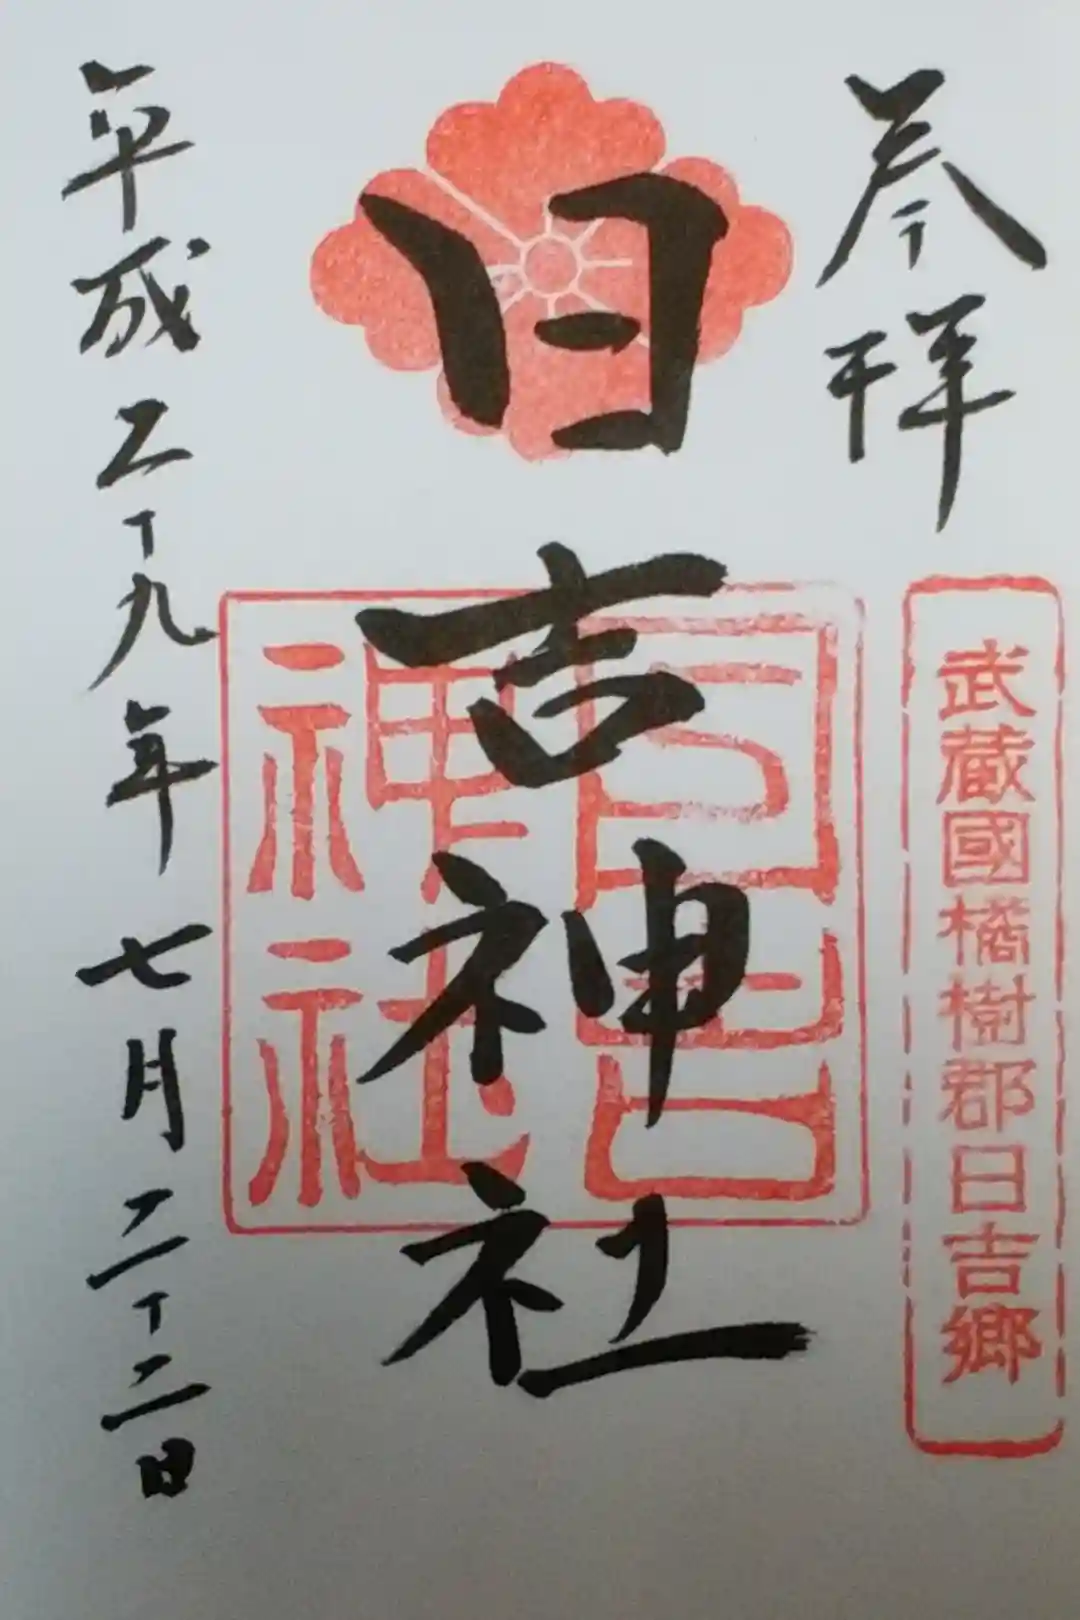 奉拝
武蔵國橘樹郡日吉郷
日吉神社
日吉
神社
平成二十九年七月二十二日